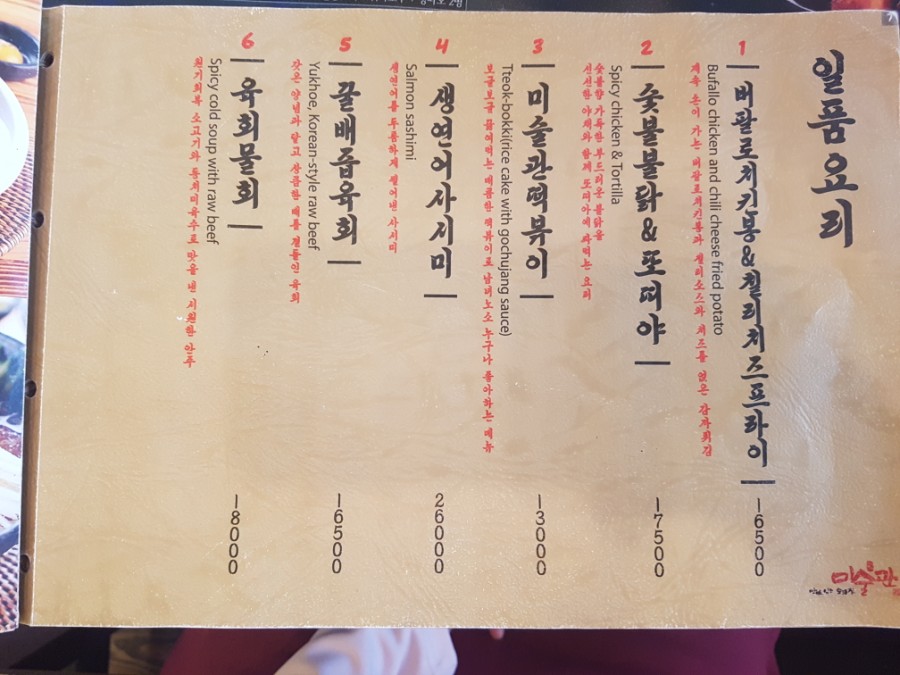 일품요리
1
버팔로치킨봉&칠리치즈프라이
16500
Bufallo chicken and chili cheese fried potato
계속 손이 가는 버팔로치킨봉과 칠리소스와 치즈를 얹은 감자튀김
2
숯불불닭&또띠야
17500
Spicy chicken & Tortilla
숯불향 가득한 부드러운 불닭을
신선한 야채와 함께 또띠아에 싸먹는 요리
3
미술관떡볶이
13000
Tteok-bokki(rice cake with gochujang sauce)
보글보글 끓여먹는 매콤한 떡볶이로 남녀노소 누구나 좋아하는 메뉴
4
생연어사시미
26000
Salmon sashimi
생연어를 두툼하게 썰어낸 사시미
5
갈배즙육회
16500
Yukhoe, Korean-style raw beef
갖은 양념과 달고 상큼한 배를 곁들인 육회
6
육회물회
18000
Spicy cold soup with raw beef
원기회복 소고기와 동치미육수로 맛을 낸 시원한 안주
미술관